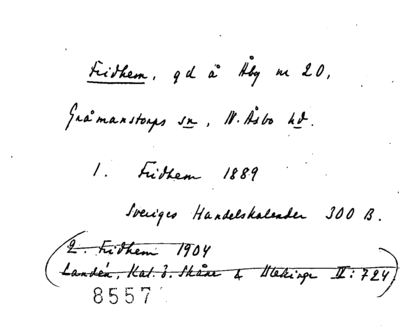 Fridhem, gd å Åby nr 20,
Gråmanstorps sn, N. Åsbo hd.
1. Fridhem 1889
Sveriges Handelskalender 300 B.
(2. Fridhem 1904
Landén, Kat. ö. Skåne & Blekinge II: 724)
8557